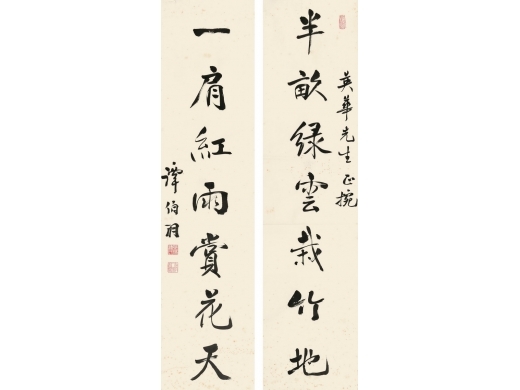 半畝綠雲栽竹地
英華先生正捥
一肩紅雨賞花天
譚伯羽